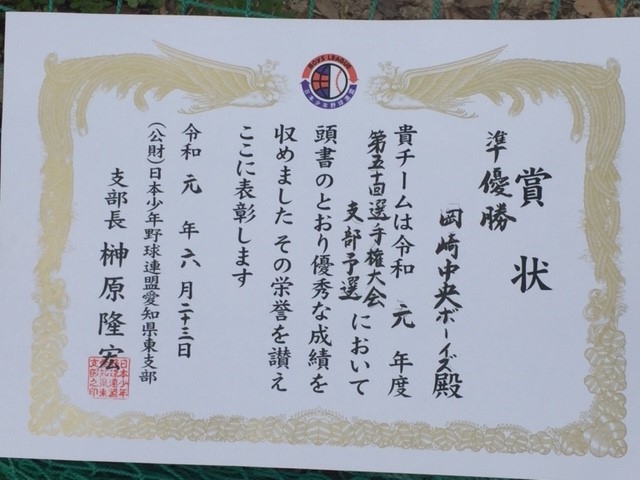 BOYS LEAGUE
日本少年野球連盟
賞状
準優勝
岡崎中央ボーイズ殿
貴チームは令和元年度
第五十回選手権大会
支部予選において
頭書のとおり優秀な成績を
収めました その栄誉を讃え
ここに表彰します
令和元年六月二十三日
(公財)日本少年野球連盟愛知県東支部
支部長 榊原隆宏